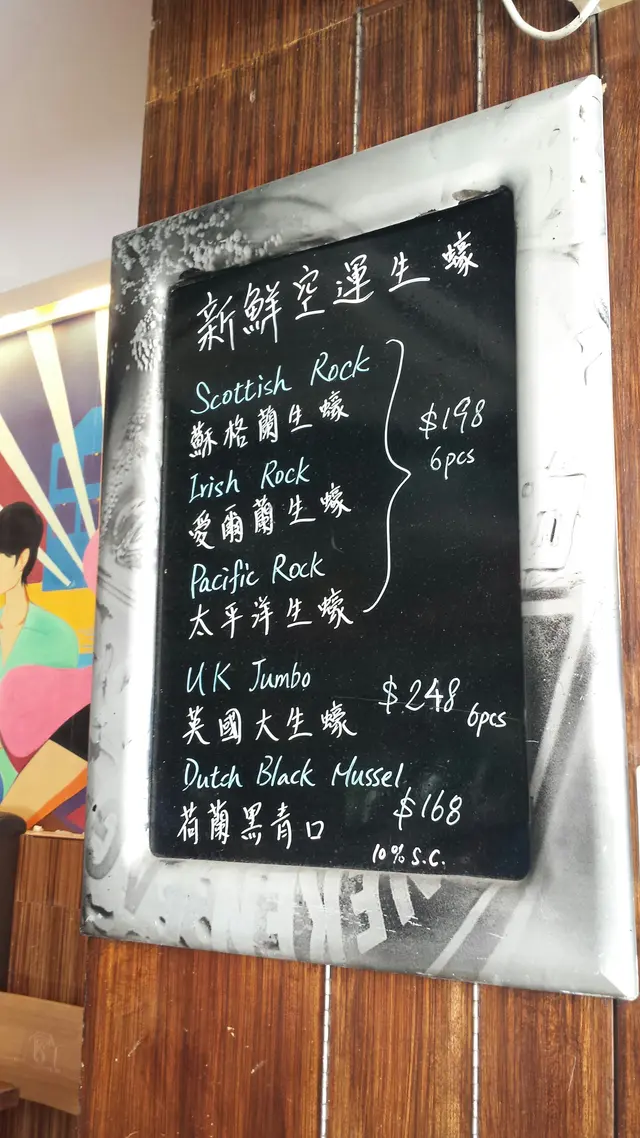 新鮮空運生蠔
Scottish Rock
蘇格蘭生蠔
$198
6pcs
Irish Rock
愛爾蘭生蠔
Pacific Rock
太平洋生蠔
UK Jumbo
英國大生蠔
$248 6pcs
Dutch Black Mussel
荷蘭黑青口
$168
10% S.C.